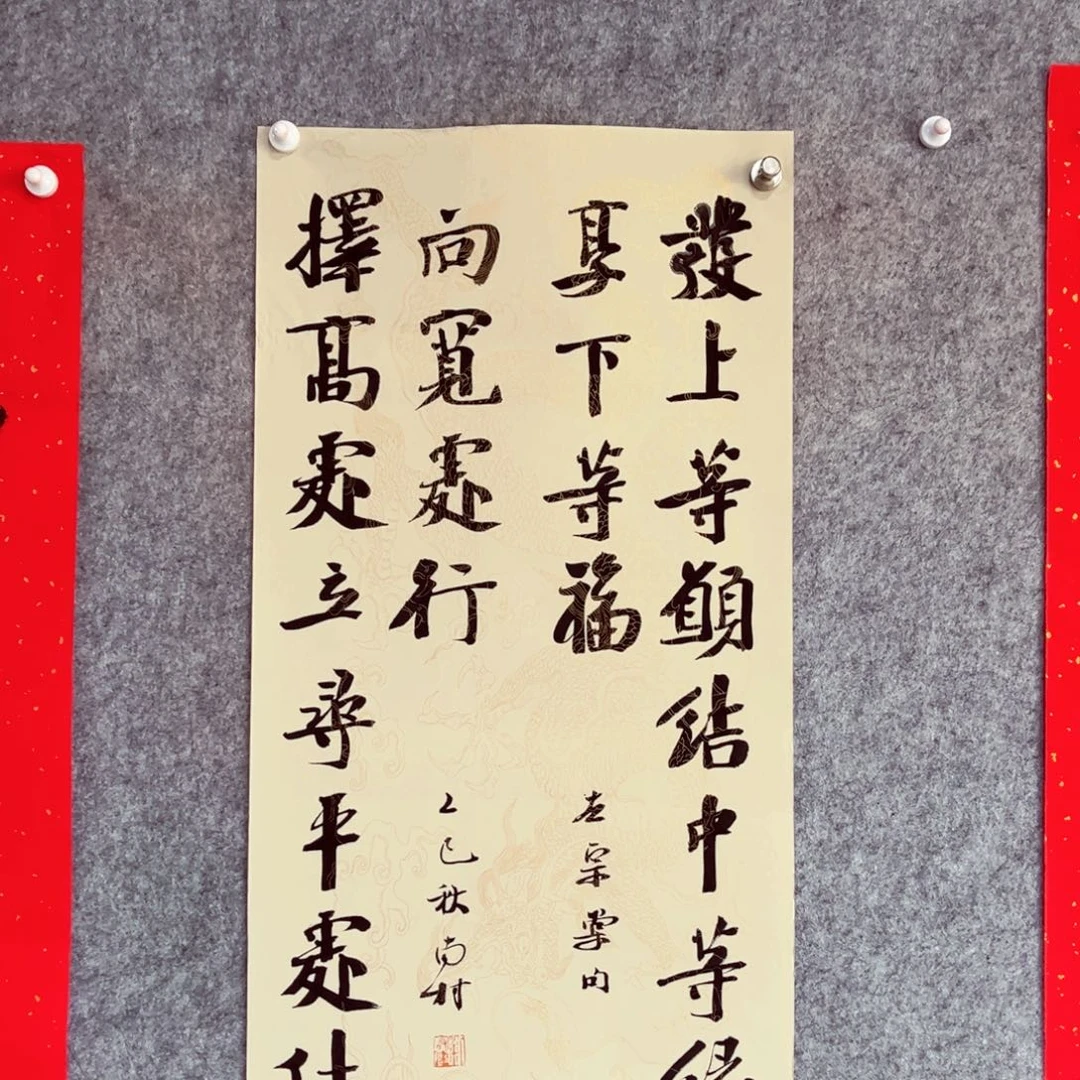 發上等願結中等緣
享下等福
左宗棠句
擇高處立尋平處住
向寬處行
乙巳秋南村